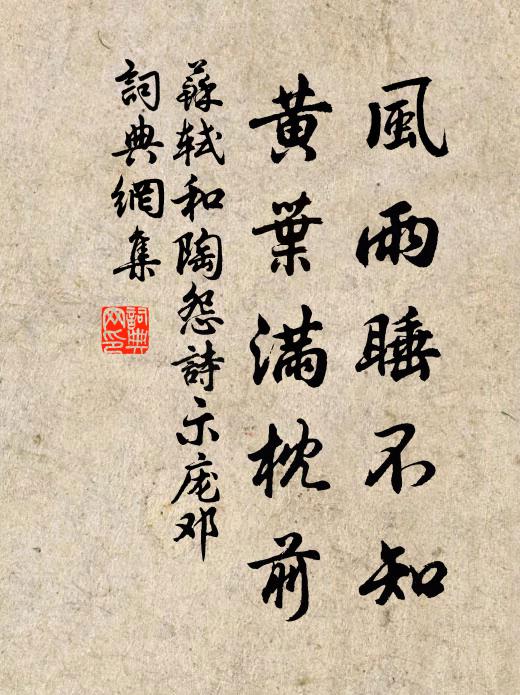 風雨睡不知
黃葉滿枕前
蘇軾和陶怨詩示庞邓
詞典網集
詞典網印